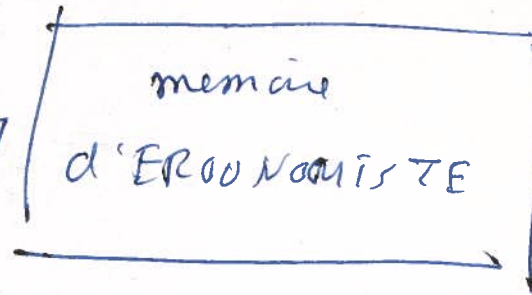 memoire
d'ERGONOMISTE